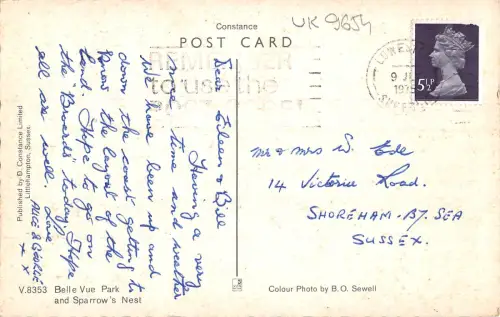 Constance
UK 9654
POST CARD
REMEMBER
to use the
LOWESTOFT
9 JU
1975
SUFFOLK
5½P
Dear Eileen & Bill
Having a very
nice time and weather
We have been up and
down the coast getting to
know the layout of the
land. Hope to go on
the "Broads" today. Hope
all are well. Love
ALICE & GEORGE
x x
Mr & Mrs W. Ede
14 Victoria Road.
SHOREHAM-BY-SEA
SUSSEX.
Published by D. Constance Limited
Littlehampton, Sussex.
V.8353 Belle Vue Park
and Sparrow's Nest
Colour Photo by B. O. Sewell